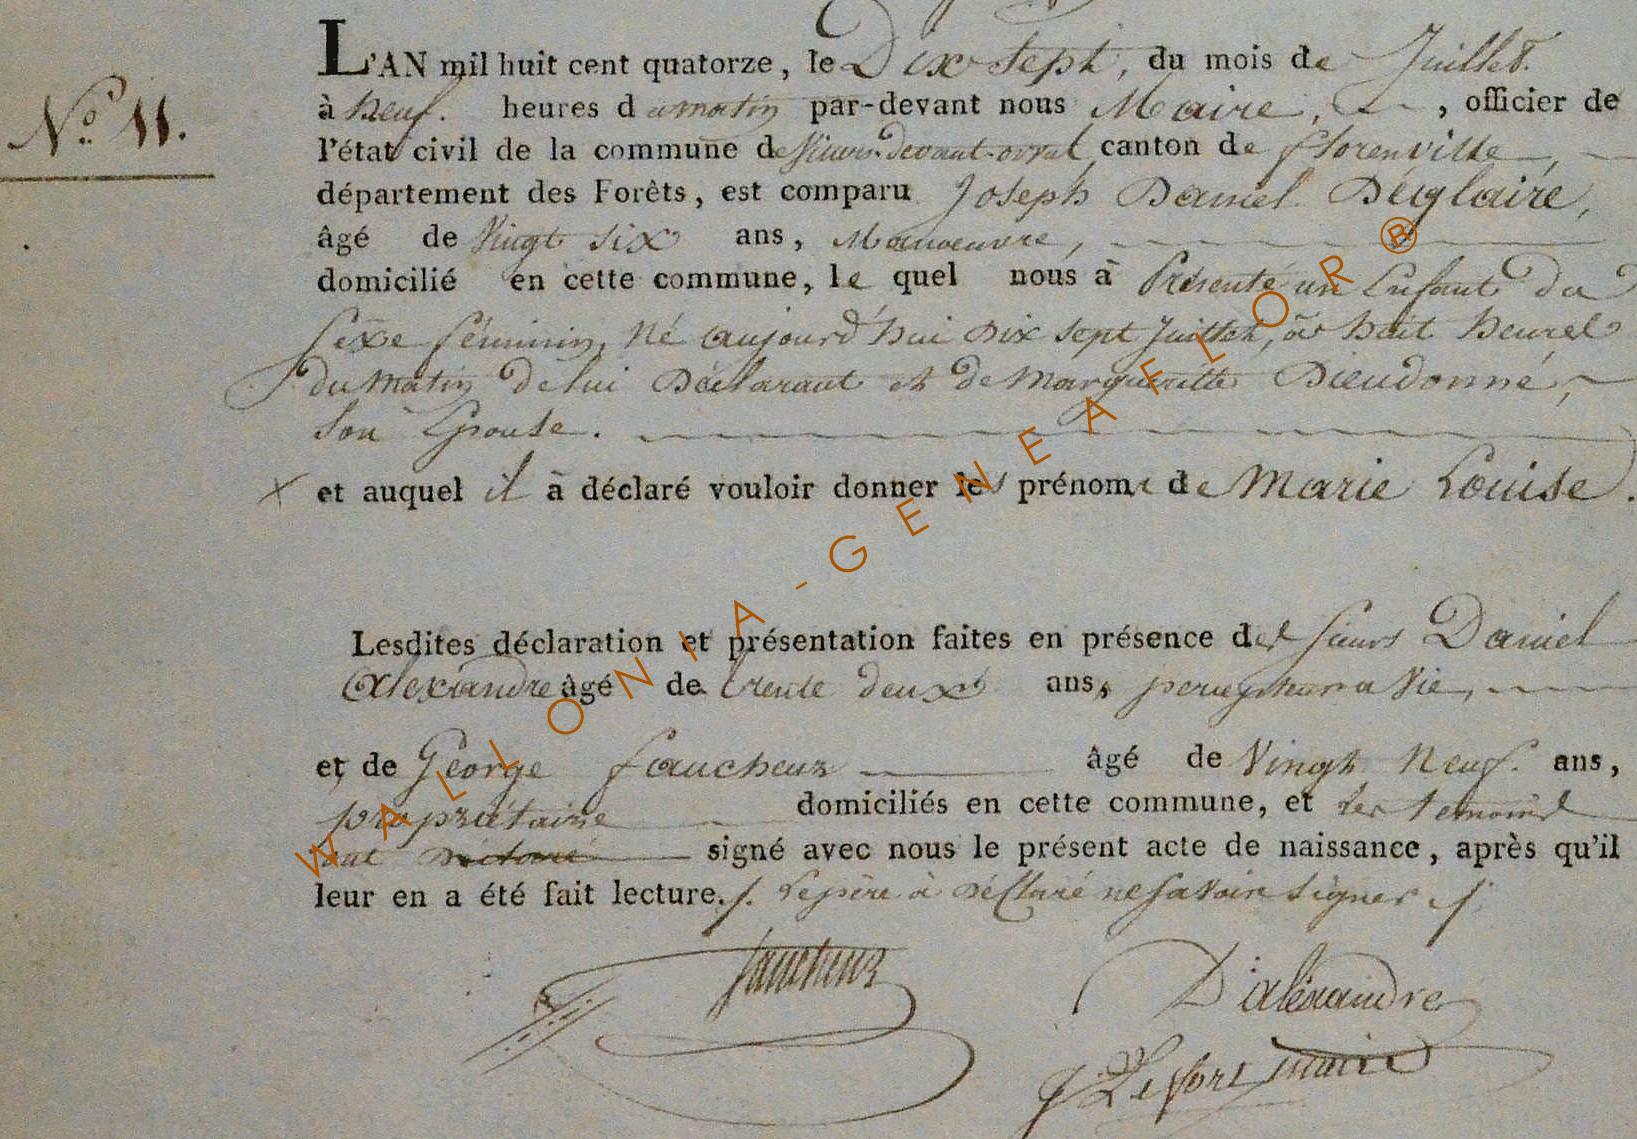 N.º 11.
L'AN mil huit cent quatorze, le Dix Sept, du mois de Juillet
à neuf. heures du matin par-devant nous Maire, officier de
l'état civil de la commune de Villers-devant-orval canton de florenville,
département des Forêts, est comparu Joseph Daniel Déglaire,
âgé de Vingt six ans, Manoeuvre,
domicilié en cette commune, le quel nous à Présenté un Enfant du
Sexe féminin, Né aujourd'hui Dix sept Juillet, à huit heures
du Matin de lui Déclarant et de Margueritte Dieudonné,
Son Epouse.
et auquel il à déclaré vouloir donner les prénom de Marie Louise.
Lesdites déclaration et présentation faites en présence des sieurs Daniel
Alexandre âgé de trente deux ans,
et de George faucheur âgé de Vingt Neuf. ans,
propriétaire domiciliés en cette commune, et les temoins
ont signé avec nous le présent acte de naissance, après qu'il
leur en a été fait lecture. Le père à Déclaré ne Savoir signer
faucheur
D alexandre
J Lefort maire
WALLONIA-GENEAFLOR®